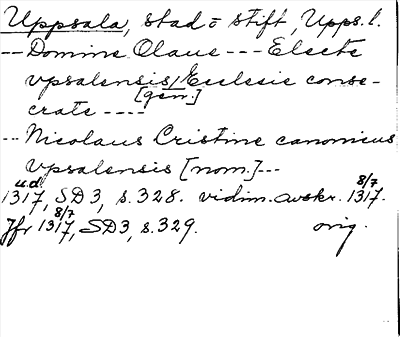 Uppsala, stad o stift, Upps. l.
--- Domine Olaue --- Electe
vpsalensis // Ecclesie conse-
[gen.]
crate ----
--- Nicolaus Cristine canonicus
vpsalensis [nom.] ---
u.d. 8/7
1317, SD 3, s. 328. vidim. avskr. 1317.
8/7
Jfr 1317, SD 3, s. 329. orig.